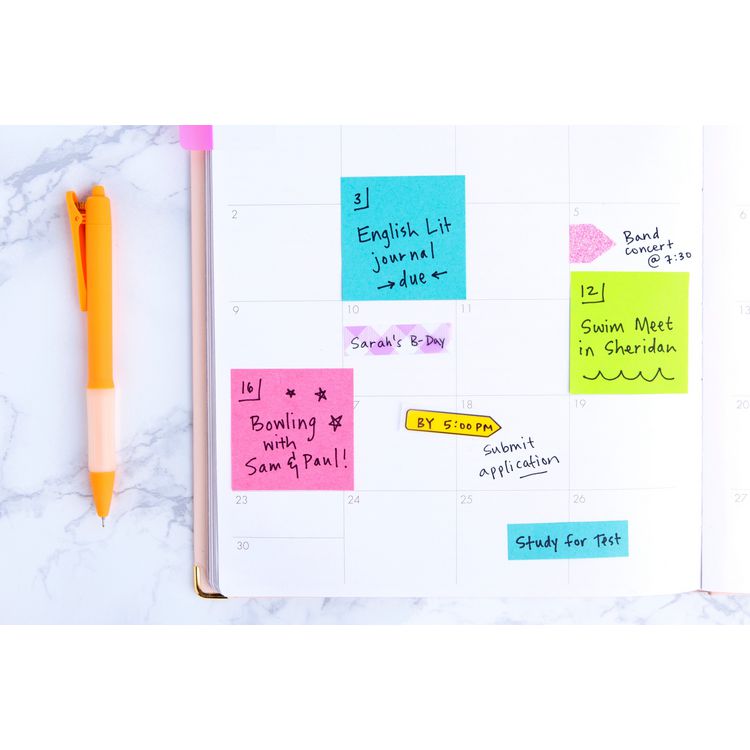 2
3
English Lit
journal
→due←
5
Band
concert
@ 7:30
6
9
10
Sarah's B-Day
11
12
Swim Meet
in Sheridan
13
16
Bowling
with
Sam & Paul!
7
18
BY 5:00 PM
Submit
application
19
20
23
24
25
26
Study for Test
27
30